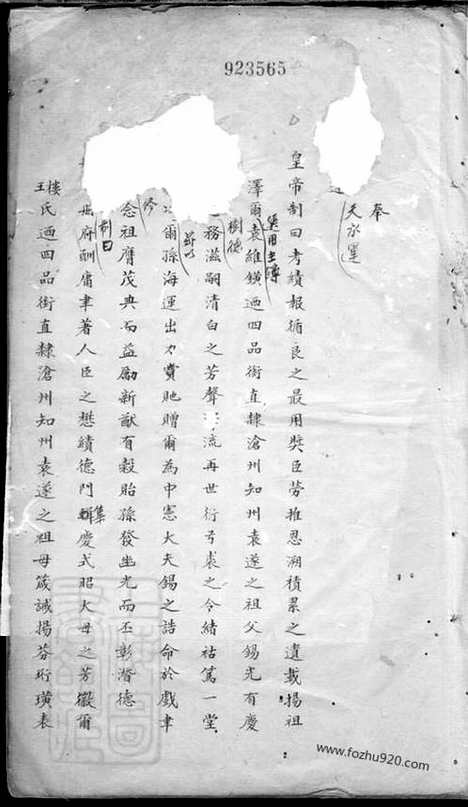 923565
奉
天承運
皇帝制曰考績報循良之最用奬臣勞推恩溯積累之遺載揚祖
澤爾袁維鐄迺四品銜直隸滄州知州袁遂之祖父錫光有慶
樹德
務滋嗣清白之芳聲 流再世衍弓裘之令緒祜篤一堂
茲以
爾孫海運出力賞貤贈爾為中憲大夫錫之誥命於戲聿
修
念祖膺茂典而益勵新猷有穀貽孫發幽光而丕彰潛德
制曰
冊府酬庸聿著人臣之懋績德門輯慶式昭大母之芳徽爾
集
王樓氏迺四品銜直隸滄州知州袁遂之祖母箴誡揚芬珩璜表
www.fozhu920.com